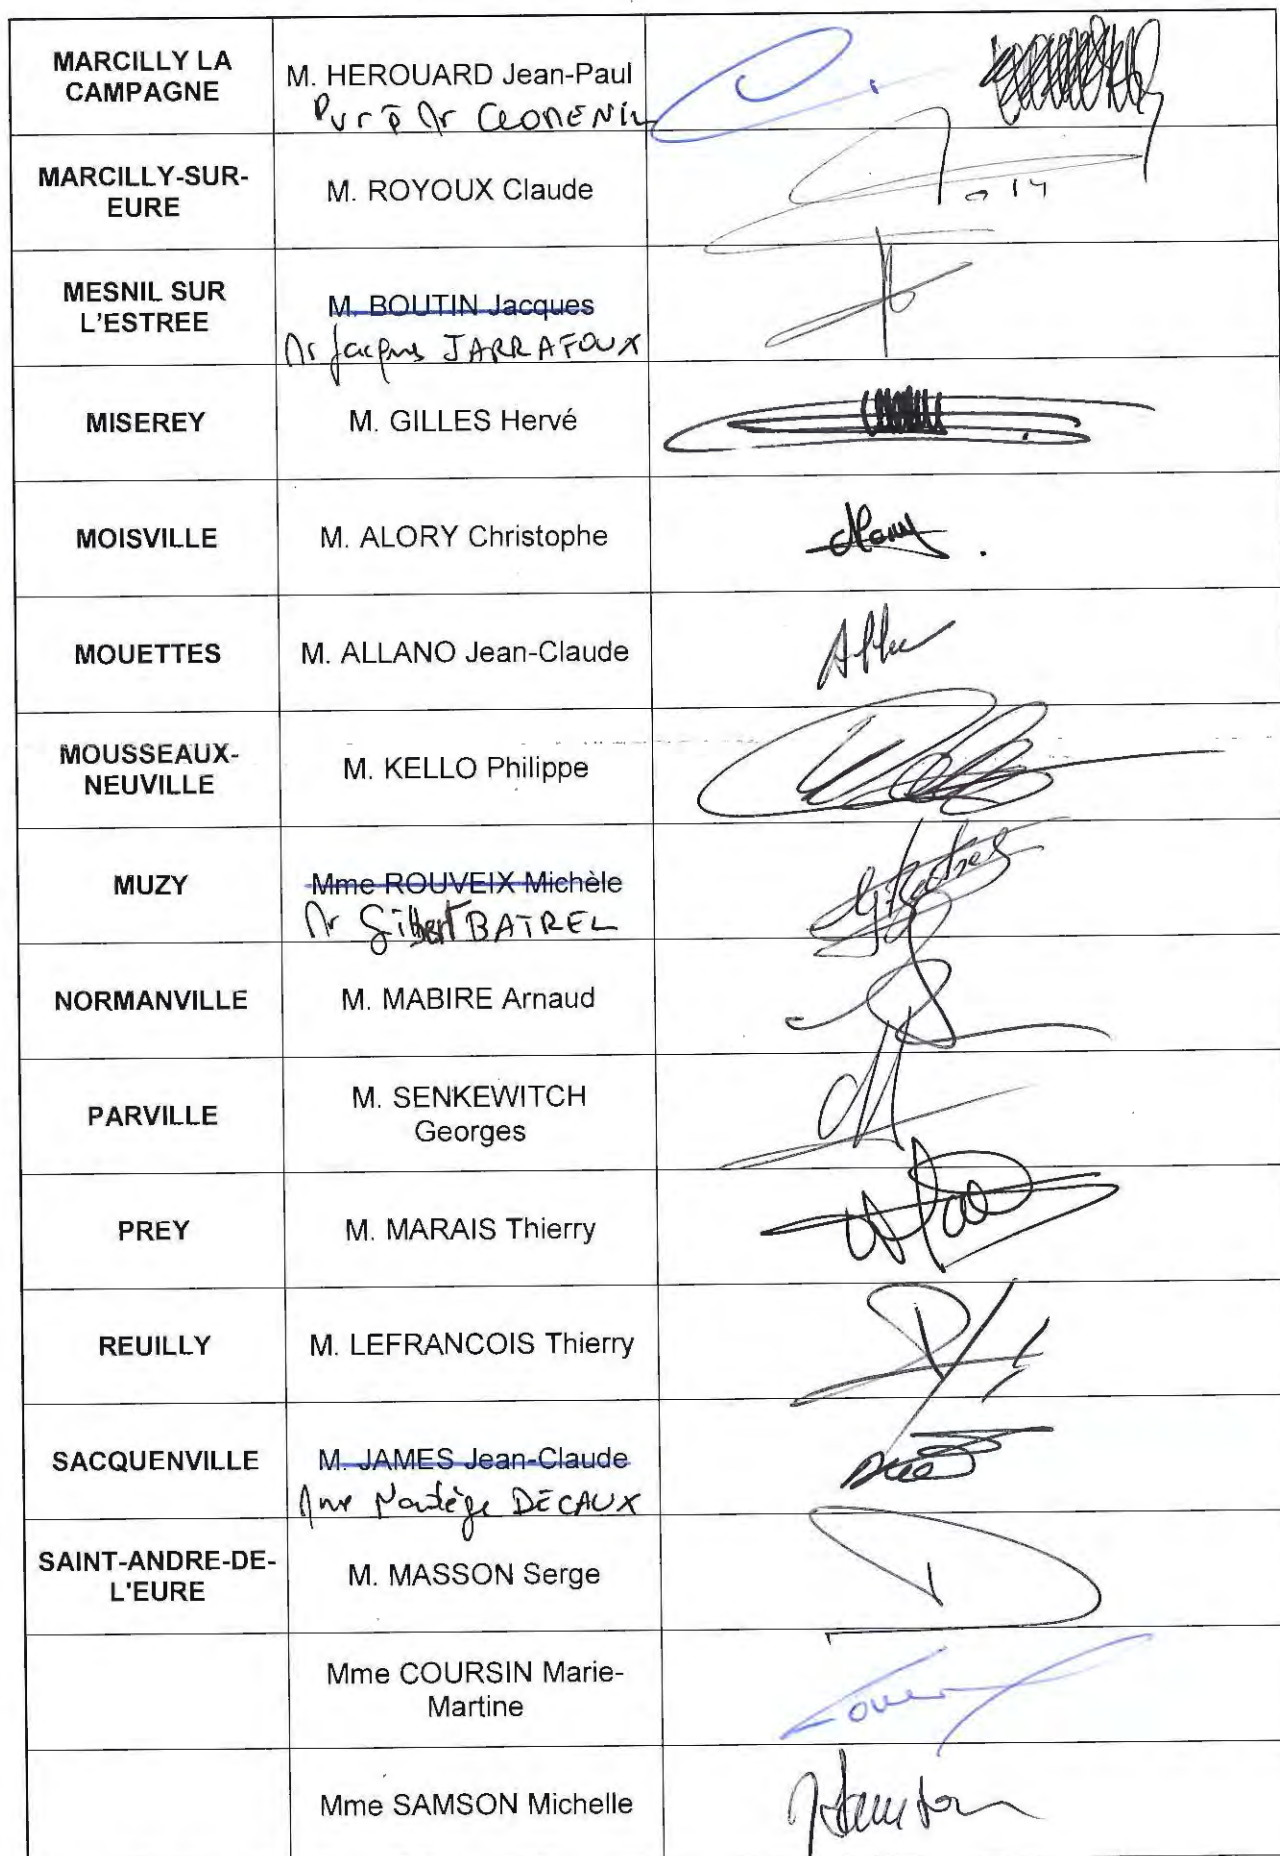 MARCILLY LA
CAMPAGNE
M. HEROUARD Jean-Paul
MARCILLY-SUR-
EURE
M. ROYOUX Claude
MESNIL SUR
L'ESTREE
M. BOUTIN Jacques
Mr Jacques JARRAFOUX
MISEREY
M. GILLES Hervé
MOISVILLE
M. ALORY Christophe
MOUETTES
M. ALLANO Jean-Claude
MOUSSEAUX-
NEUVILLE
M. KELLO Philippe
MUZY
Mme ROUVEIX Michèle
Mr Gilbert BATREL
NORMANVILLE
M. MABIRE Arnaud
PARVILLE
M. SENKEWITCH
Georges
PREY
M. MARAIS Thierry
REUILLY
M. LEFRANCOIS Thierry
SACQUENVILLE
M. JAMES Jean-Claude
Mme DECAUX
SAINT-ANDRE-DE-
L'EURE
M. MASSON Serge
Mme COURSIN Marie-
Martine
Mme SAMSON Michelle